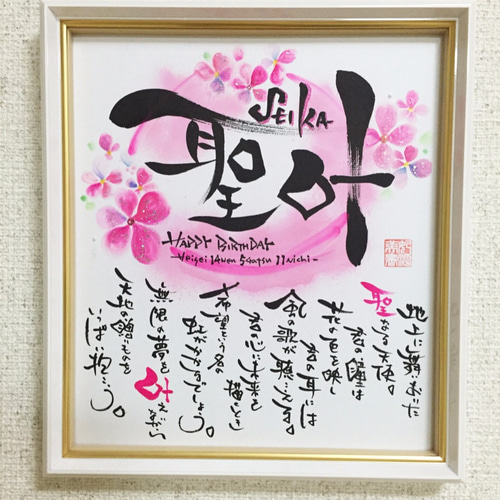 SEIKA
聖叶
HAPPY BIRTHDAY
-Heisei 14nen 5gatsu 11nichi-
地上に舞いおりた
聖なる天使。
君の瞳は
花の色を映し
君の耳には
風の歌が聴こえる。
君が心に未来を
描くとき
希望という名の
虹がかかるでしょう。
無限の夢を
叶えながら
天地の贈りものを
いっぱい抱こう。